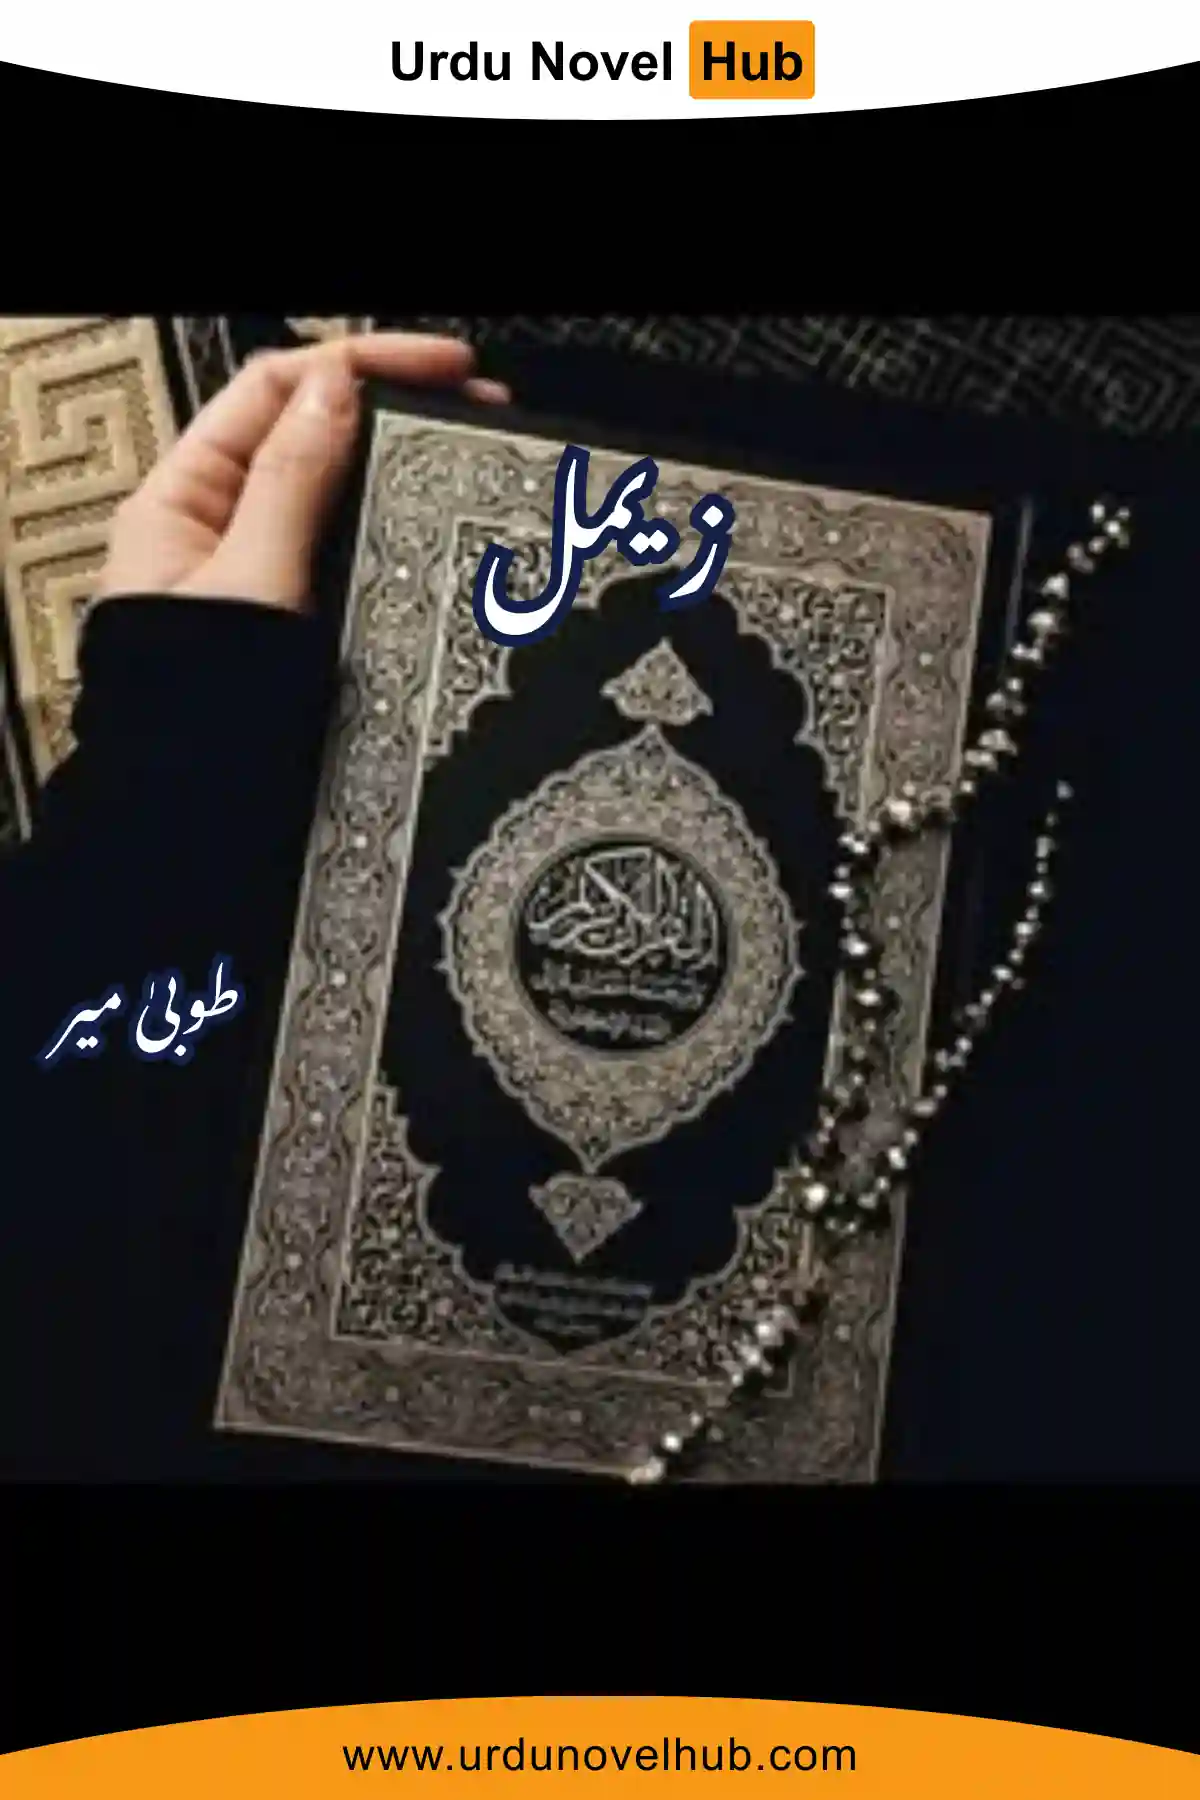 Urdu Novel Hub
زیمل
القرآن الكريم
طوبیٰ میر
www.urdunovelhub.com